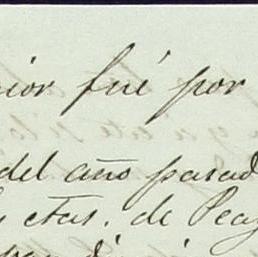 ior fué por
del año pasad
ctas. de Peaj